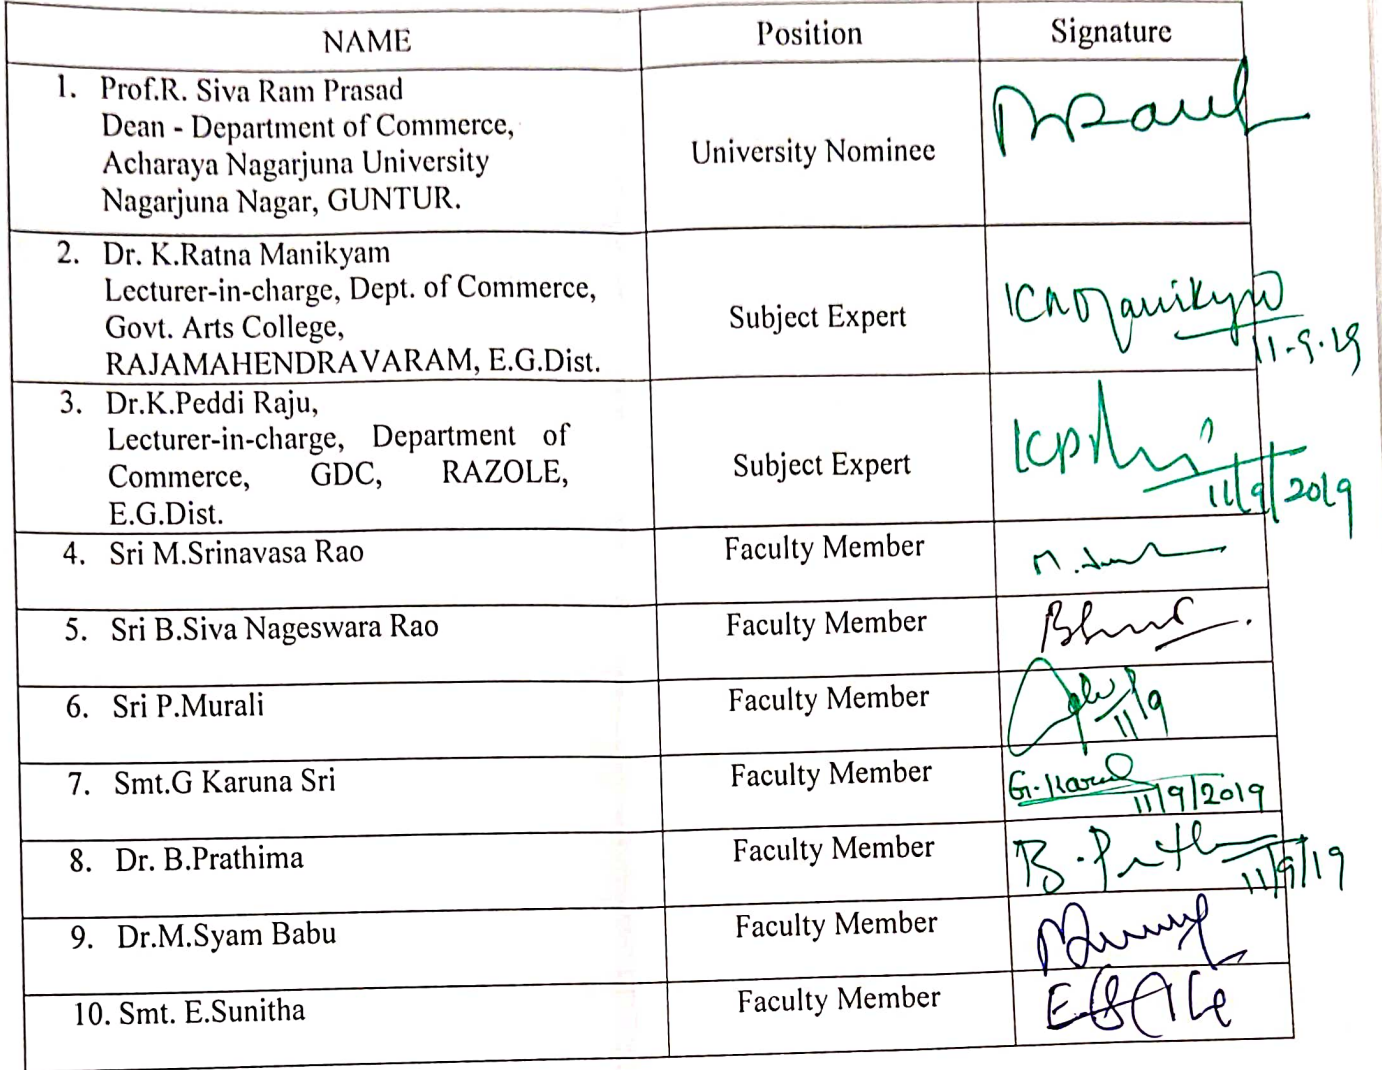 NAME Position Signature
1. Prof.R. Siva Ram Prasad
Dean - Department of Commerce,
Acharaya Nagarjuna University University Nominee
Nagarjuna Nagar, GUNTUR.
2. Dr. K.Ratna Manikyam
Lecturer-in-charge, Dept. of Commerce,
Govt. Arts College, Subject Expert
RAJAMAHENDRAVARAM, E.G.Dist.
11-9-19
3. Dr.K.Peddi Raju,
Lecturer-in-charge, Department of
Commerce, GDC, RAZOLE, Subject Expert
E.G.Dist.
11/9/2019
4. Sri M.Srinavasa Rao Faculty Member
5. Sri B.Siva Nageswara Rao Faculty Member
6. Sri P.Murali Faculty Member
11/9
7. Smt.G Karuna Sri Faculty Member
11/9/2019
8. Dr. B.Prathima Faculty Member
11/9/19
9. Dr.M.Syam Babu Faculty Member
10. Smt. E.Sunitha Faculty Member